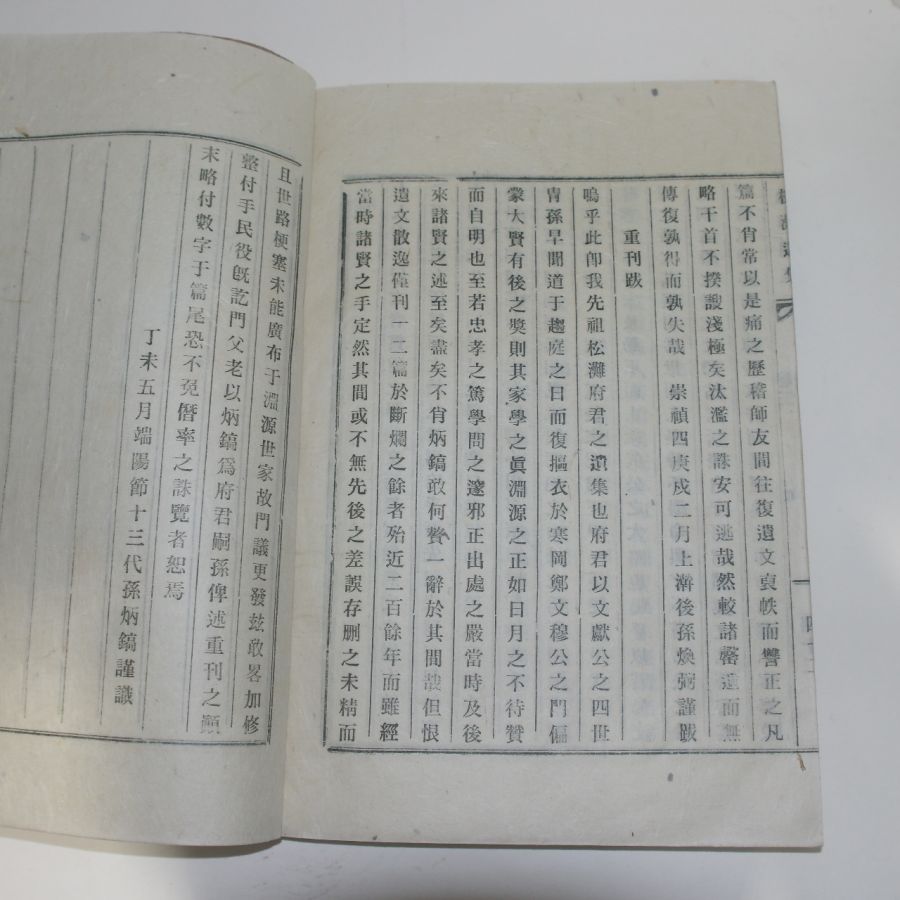 篇不肖常以是痛之歷稽師友間往復遺文裒帙而讐正之凡
略干首不揆謏淺極矣汰濫之誅安可逃哉然較諸罄遺而無
傳復孰得而孰失哉 崇禎四庚戍二月上澣後孫煥弼謹跋
重刊跋
嗚乎此卽我先祖松灘府君之遺集也府君以文獻公之四世
胄孫早聞道于趨庭之日而復摳衣於寒岡鄭文穆公之門偏
蒙大賢有後之奬則其家學之眞淵源之正如日月之不待贊
而自明也至若忠孝之篤學問之邃邪正出處之嚴當時及後
來諸賢之述至矣盡矣不肖炳鎬敢何贅一辭於其間哉但恨
遺文散逸僅刊一二篇於斷爛之餘者殆近二百餘年而雖經
當時諸賢之手定然其間或不無先後之差誤存刪之未精而
且世路梗塞未能廣布于淵源世家故門議更發玆敢畧加修
整付手民役旣訖門父老以炳鎬爲府君嗣孫俾述重刊之顚
末略付數字于篇尾恐不免僭率之誅覽者恕焉
丁未五月端陽節十三代孫炳鎬謹識